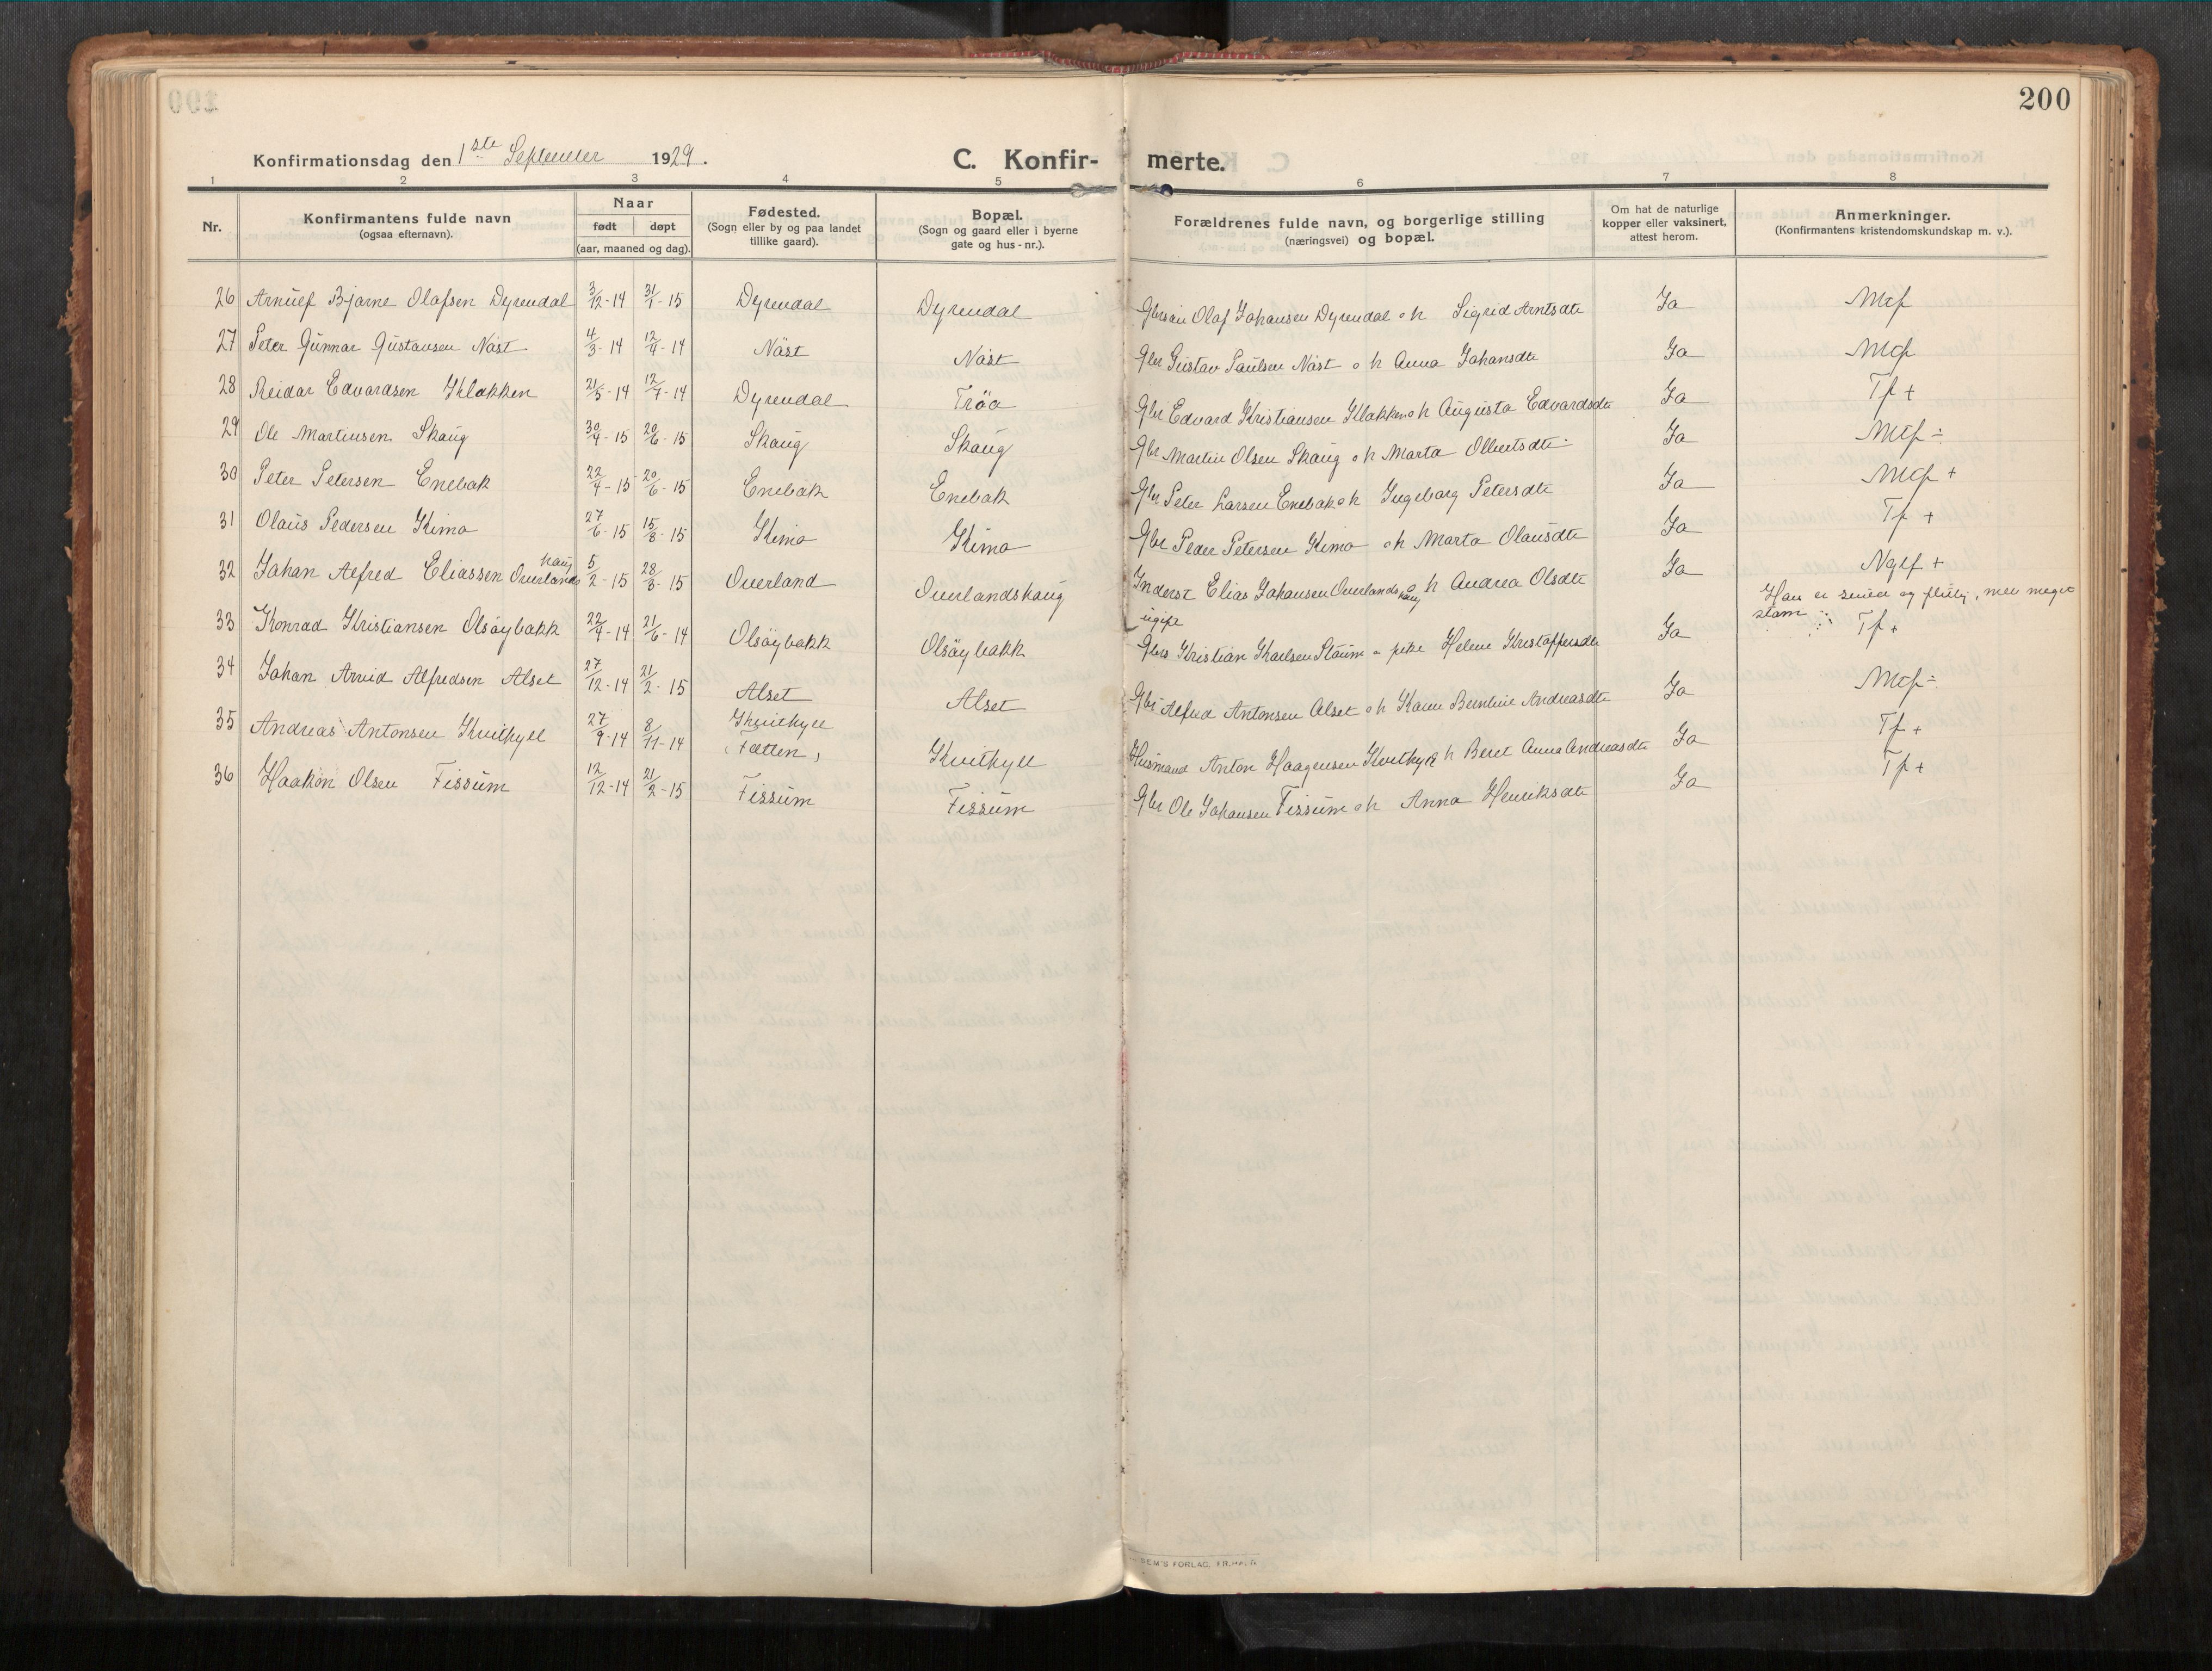 200
Konfirmationsdag den 1ste September 1929.
C. Konfir- merte.
1 2 3 4 5 6 7 8
Nr.
Konfirmantens fulde navn
(ogsaa efternavn).
Naar
født døpt
(aar, maaned og dag).
Fødested.
(Sogn eller by og paa landet
tillike gaard).
Bopæl.
(Sogn og gaard eller i byerne
gate og hus-nr.).
Forældrenes fulde navn, og borgerlige stilling
(næringsvei) og bopæl.
Om hat de naturlige
kopper eller vaksinert,
attest herom.
Anmerkninger.
(Konfirmantens kristendomskundskap m. v.).
26 Arnulf Bjarne Olafsen Dyrendal 3/12-14 31/1-15 Dyrendal Dyrendal Olaf Johansen Dyrendal o h Sigrid Arntsdtr Ja Mcf
27 Peter Gunnar Gustavsen Näst 4/3-14 12/4-14 Näst Näst Gbr Gustav Paulsen Näst o h Anna Johansdtr Ja Mcf
28 Reidar Edvardsen Klakken 21/5-14 12/7-14 Dyrendal Trøa Gbr Edvard Kristiansen Klakken o h Augusta Edvardsdtr Ja Tf +
29 Ole Martinsen Skaug 30/4-15 20/6-15 Skaug Skaug Gbr Martin Olsen Skaug o h Marta Olbertsdtr Ja Mcf ÷
30 Peter Petersen Enebak 22/4-15 20/6-15 Enebak Enebak Gbr Peter Larsen Enebak o h Ingeborg Petersdtr Ja Mcf +
31 Olaus Pedersen Kimo 27/6-15 15/8-15 Kimo Kimo Gbr Peder Petersen Kimo o h Marta Olausdtr Ja Tf +
32 Johan Alfred Eliassen Overlandshaug 5/2-15 28/3-15 Overland Overlandshaug Inderst Elias Johansen Overlandshaug o h Andrea Olsdtr Ja Ngf +
Han er snild og flitig, men meget
stam
33 Konrad Kristiansen Olsöybakk 22/4-14 21/6-14 Olsöybakk Olsöybakk ugift
Gbrs Kristian Karlsen Staum o pike Helene Kristoffersdtr Ja Tf +
34 Johan Arvid Alfredsen Alset 27/12-14 21/2-15 Alset Alset Gbr Alfred Antonsen Alset o h Karen Berntine Andreasdtr Ja Mcf ÷
35 Andreas Antonsen Kvithyll 27/9-14 8/11-14 Kvithyll
(Fætten) Kvithyll Husmand Anton Haagensen Kvithyll o h Beret Anna Andreasdtr Ja Tf +
36 Haakon Olsen Fissum 12/12-14 21/2-15 Fissum Fissum Gbr Ole Johansen Fissum o h Anna Henriksdtr Ja Tf +
SEM'S FORLAG, FR.HALD